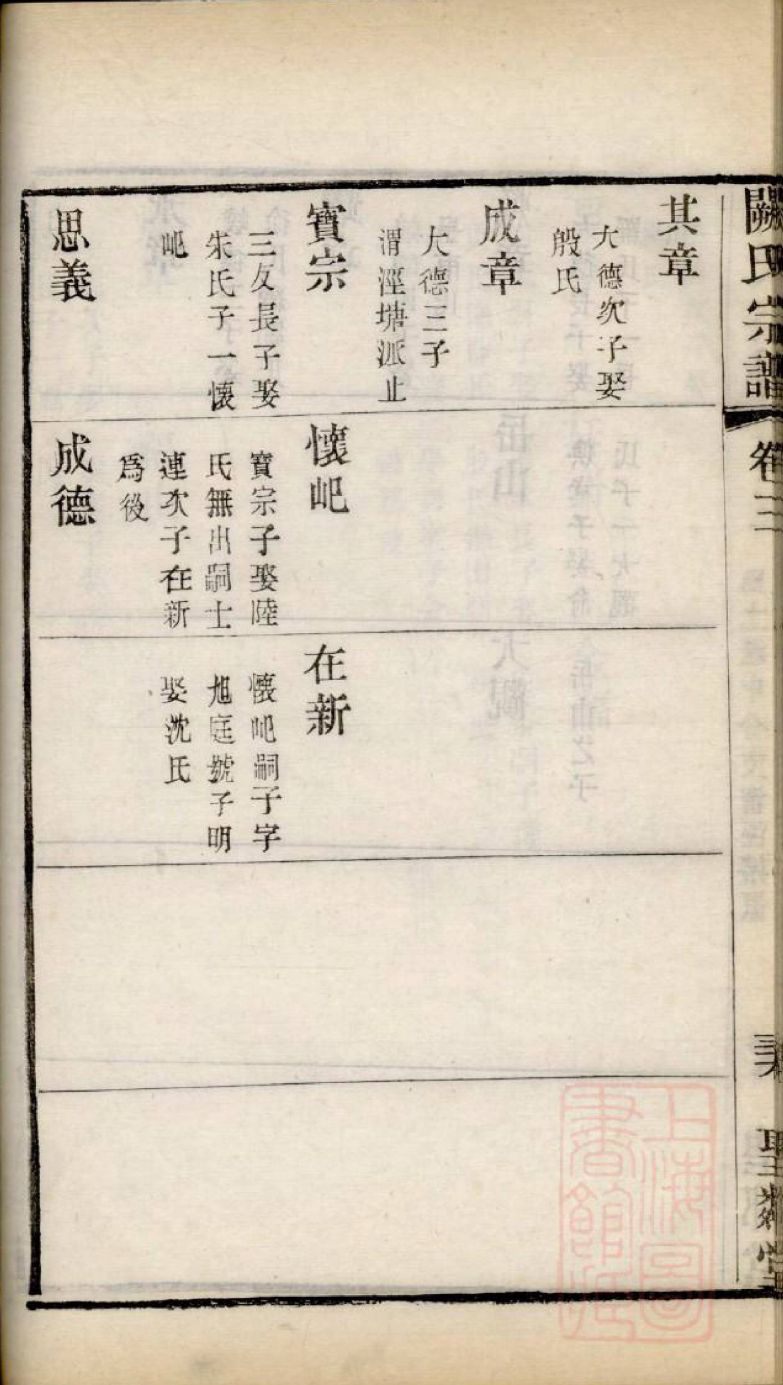 闕氏宗譜
卷三
其章
大德次子娶
殷氏
成章
大德三子
渭涇塘派止
寶宗
三友長子娶
朱氏子一懷
屺
思義
懷屺
寶宗子娶陸
氏無出嗣士
連次子在新
爲後
成德
在新
懷屺嗣子字
旭庭號子明
娶沈氏
上海圖
書館藏